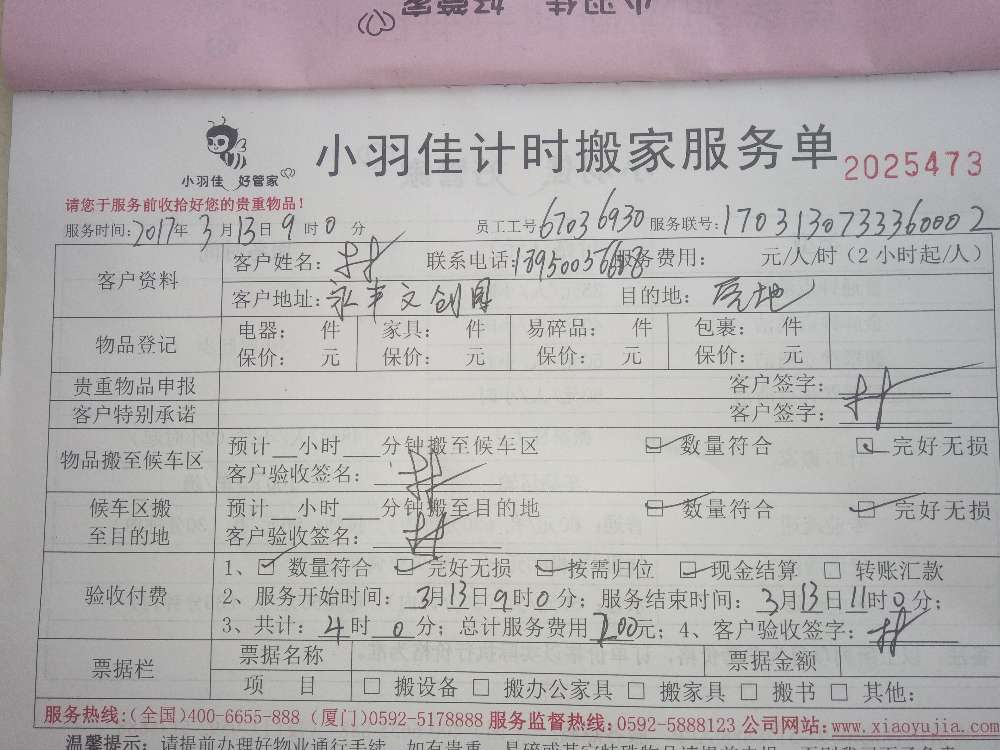 小羽佳 好管家
小羽佳 好管家
小羽佳计时搬家服务单 2025473
请您于服务前收拾好您的贵重物品!
服务时间:2017年3月13日9时0分 员工工号 67036930 服务联号:170313073336000 2
客户资料 客户姓名: 联系电话: 服务费用: 元/人/时(2小时起/人)
客户地址:永丰文创园 目的地:
物品登记 电器: 件 家具: 件 易碎品: 件 包裹: 件
保价: 元 保价: 元 保价: 元 保价: 元
贵重物品申报 客户签字:
客户特别承诺 客户签字:
物品搬至候车区 预计__小时___分钟搬至候车区 数量符合 完好无损
客户验收签名:
候车区搬至目的地 预计__小时___分钟搬至目的地 数量符合 完好无损
客户验收签名:
验收付费 1、数量符合 完好无损 按需归位 现金结算 转账汇款
2、服务开始时间:3月13日9时0分;服务结束时间:3月13日11时0分;
3、共计:4时0分;总计服务费用200元;4、客户验收签字:
票据栏 票据名称 票据金额
项 目 搬设备 搬办公家具 搬家具 搬书 其他:
服务热线:(全国)400-6655-888 (厦门)0592-5178888 服务监督热线:0592-5888123 公司网站:www.xiaoyujia.com
温馨提示:请提前办理好物业通行手续